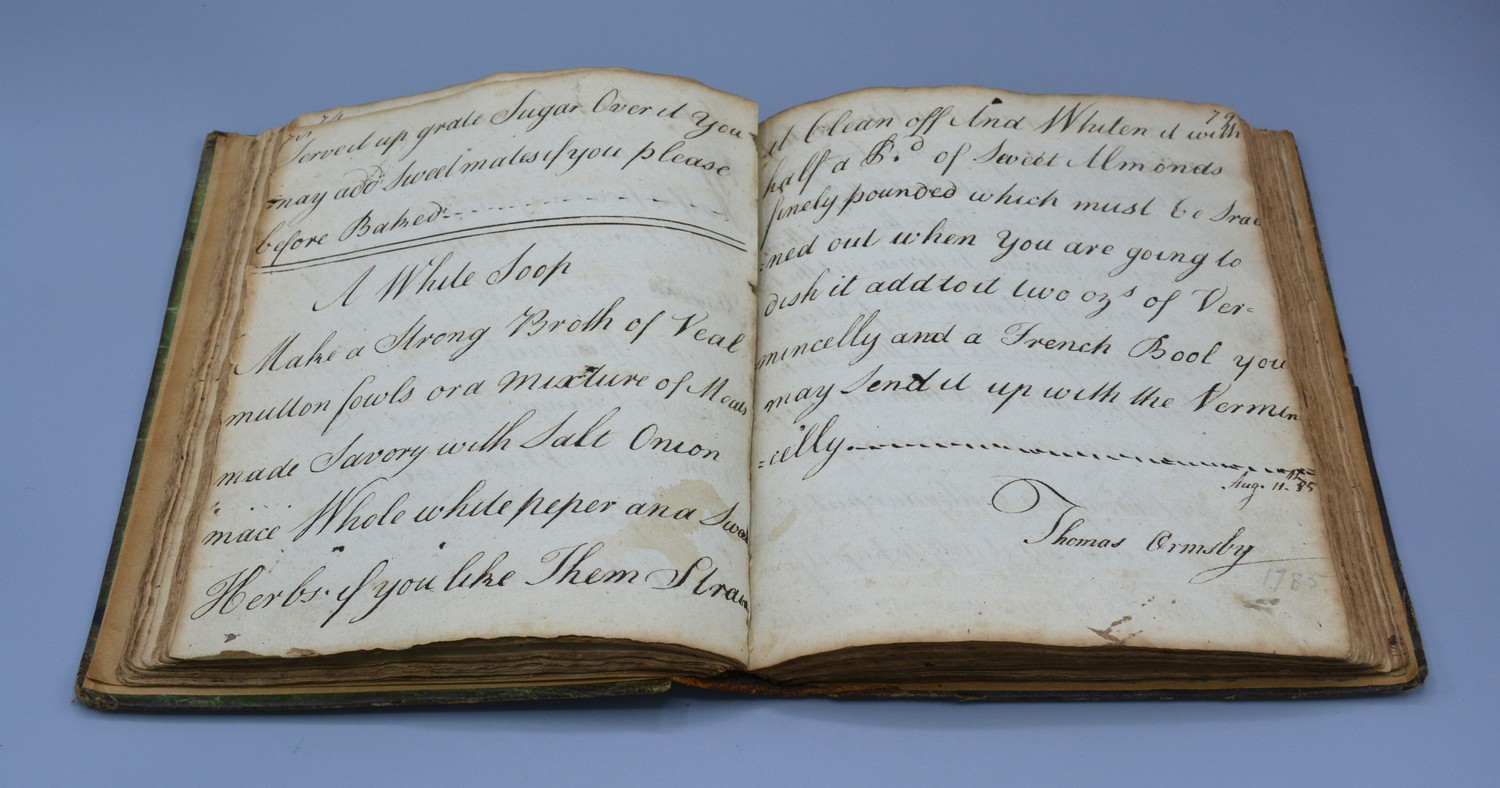 74
Serve it up grate Sugar Over it You
may add Sweetmates if you please
before Baked
A White Soop
Make a Strong Broth of Veal
mutton fowls or a mixture of Meats
made Savory with Salt Onion
mace Whole white peper and Sweet
Herbs if you like Them Strain
79
it Clean off And Whiten it with
half a P.d of Sweet Almonds
finely pounded which must be Srai
ned out when You are going to
dish it add to it two ozs of Ver=
mincelly and a French Bool you
may Send it up with the Vermin
=celly.
Aug. 11th 85
Thomas Ormsby
1785